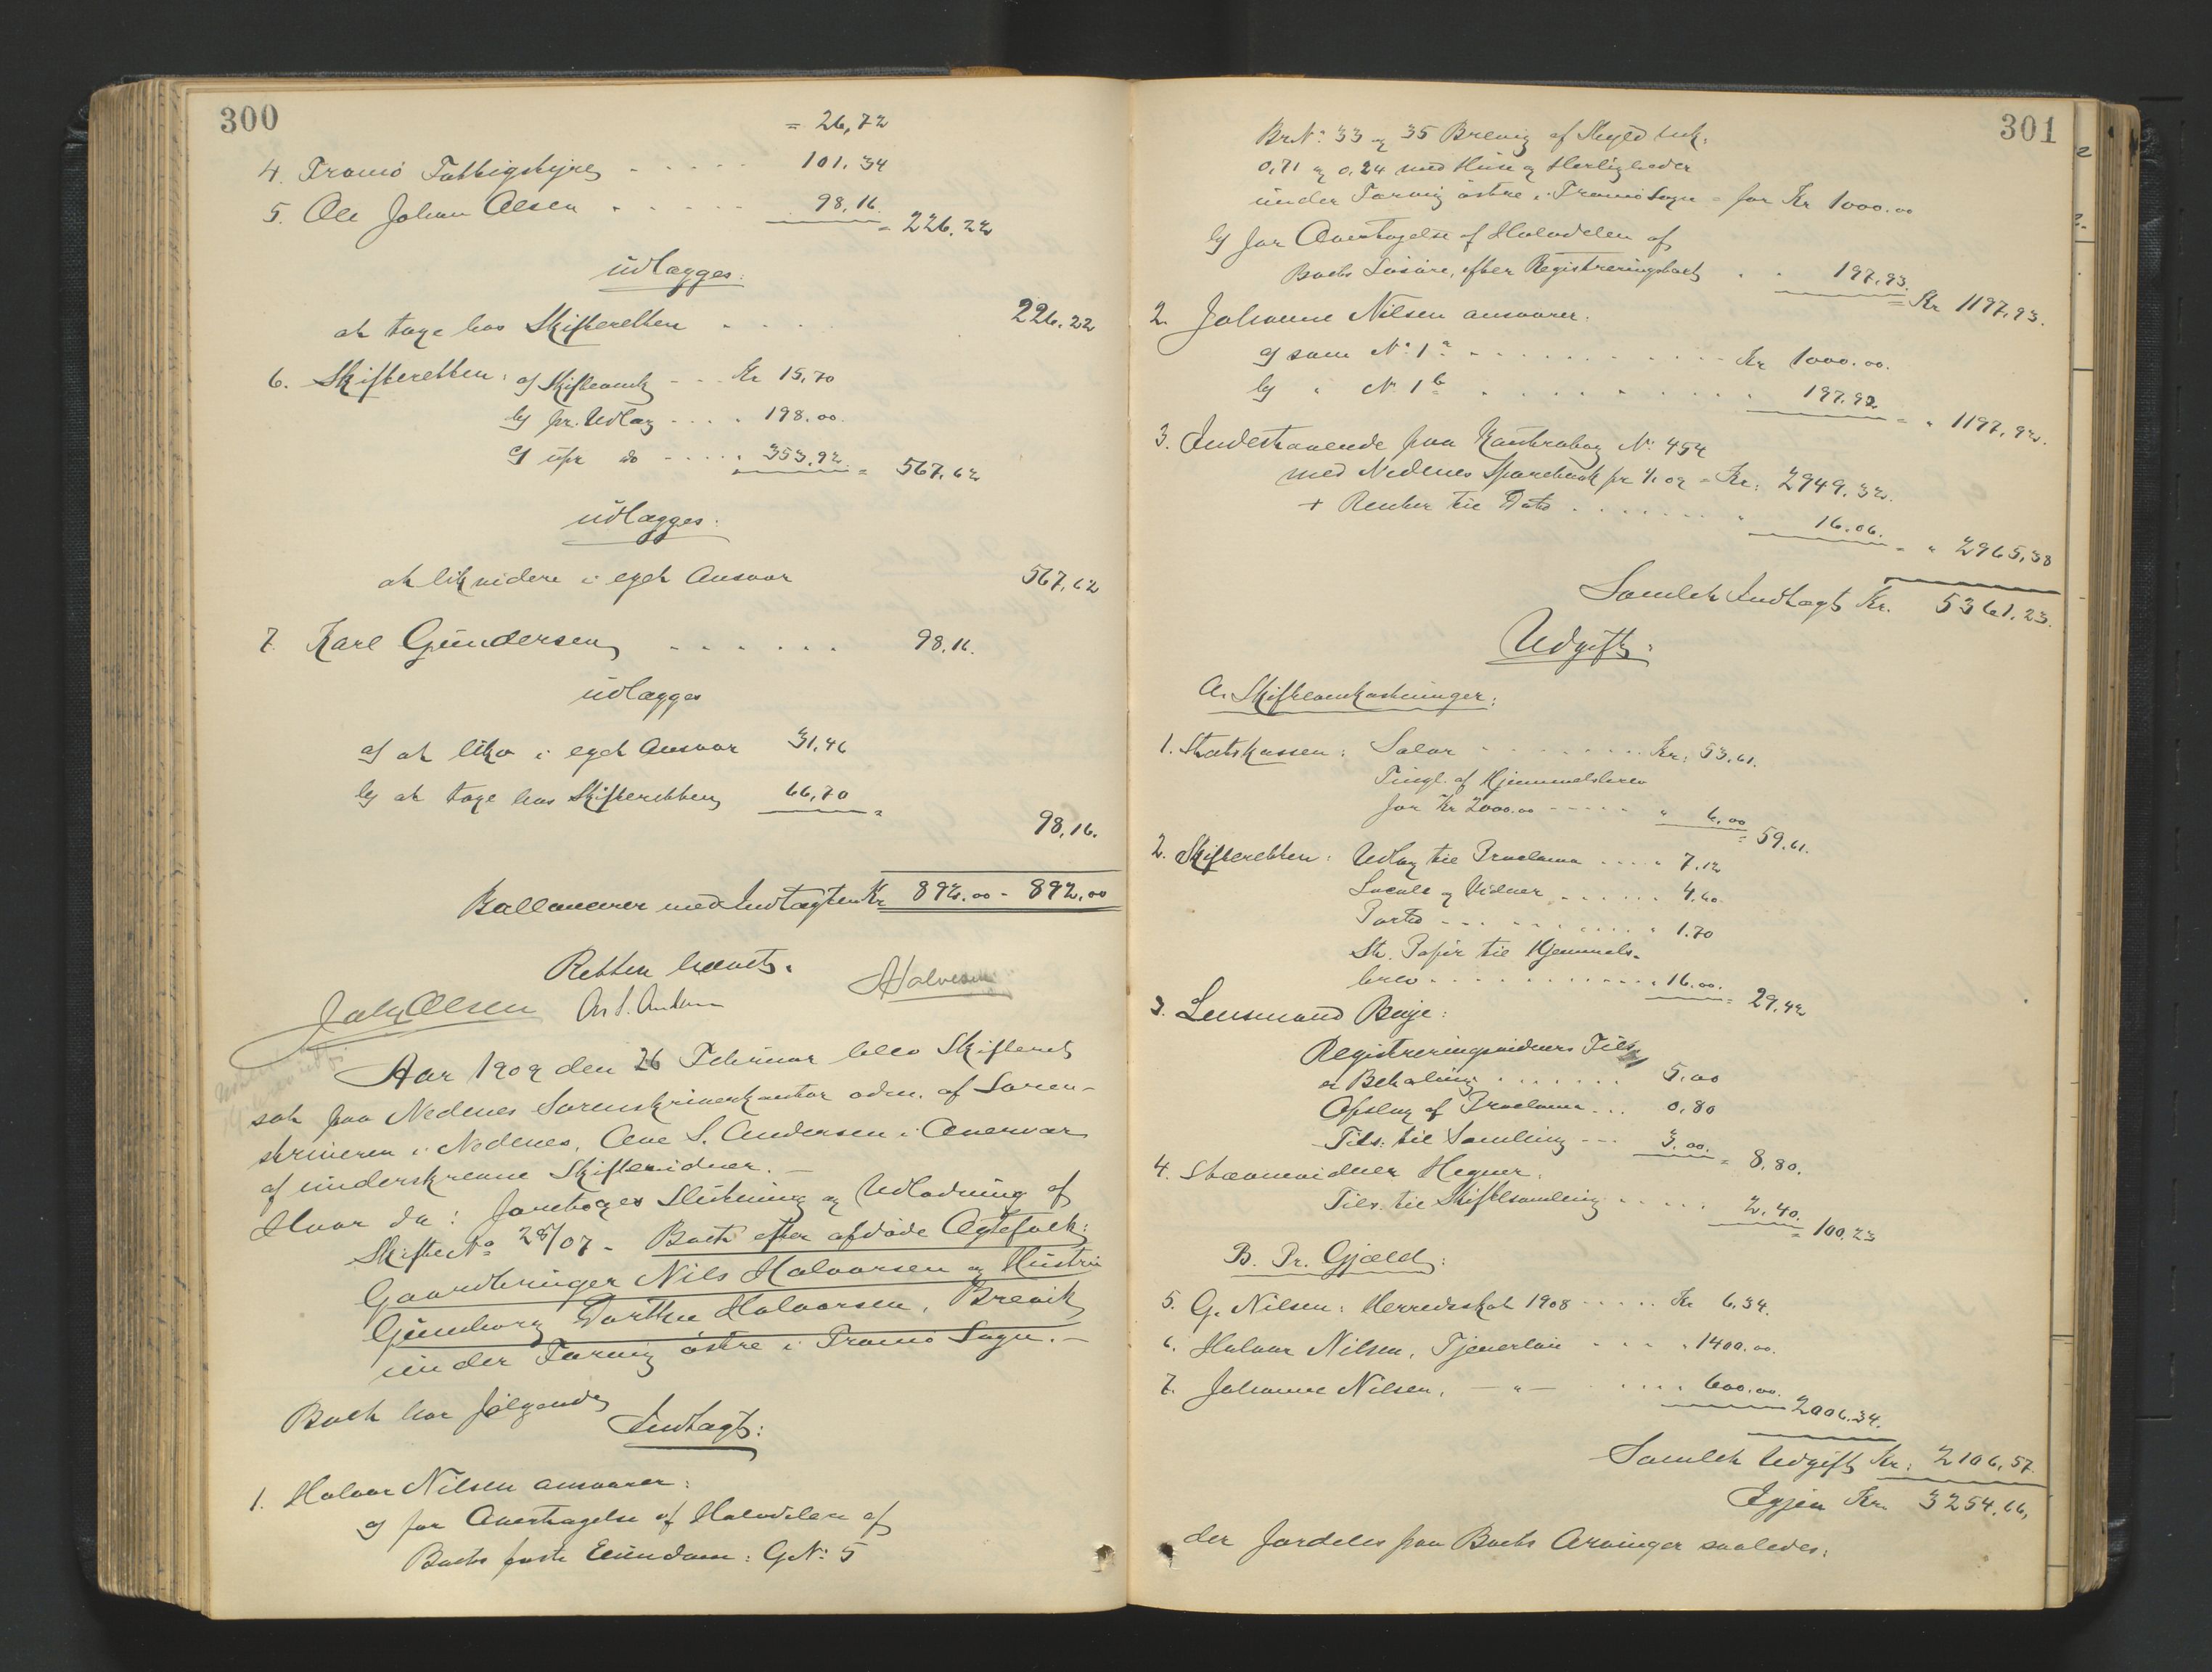 300
= 26,72
4. Tromö Fattigstyre - - - - - 101.34
5. Ole Johan Olsen - - - - - 98,16. = 226.22
udlægges:
at tage hos Skifteretten - - - - 226.22
6. Skifteretten: a) Skifteomk - - - Kr 15,70
b) pr. Udlæg - - - - 198.00.
c) upr do - - - - - 353,92 = 567,62
udlægges:
at likvidere i eget Ansvar 567,62
7. Karl Gundersen - - - - - - 98,16.
udlægges
a) at likv i eget Ansvar 31,46
b) at tage hos Skifteretten 66,70 =
98,16.
Ballancerer med Indtægten Kr 892.00 - 892,00
Retten hævet.
Johs Olsen
Halvorsen
Aar 1909 den 26 Februar blev Skifteret
sat paa Nedenes Sorenskriverkontor adm. af Soren-
skriveren i Nedenes, Ove S. Andersen i Overvær
af underskrevne Skiftevidner. —
Hvor da: foretoges Slutning og Udlodning af
Skifte No 28/07 - Boet efter afdøde Ægtefolk:
Gaardbruger Nils Halvorsen og Hustru
Gunborg Dorthea Halvorsen, Brevik
under Færvig östre i Tromö Sogn. —
Boet har følgende
Indtægt:
1. Halvor Nilsen ansvarer:
a) for Overtagelse af Halvdelen af
Boets faste Eiendom: G.No: 5
301
Br.No: 33 og 35 Brevig af Skyld mk.
0,71 og 0,24 med Huse og Herligheder
under Færvig östre i Tromö Sogn - for Kr 1000.00
b) for Overtagelse af Halvdelen af
Boets Løsøre, efter Registreringsfort - - 197,93. = Kr 1197,93.
2. Johanne Nilsen ansvarer:
a) som No: 1 a - - - - - - - - - - - Kr 1000.00.
b) " No 1 b - - - - - - - - - - 197.92 = " 1197,92.
3. Indestaaende paa Kontrabog No. 454
med Nedenes Sparebank pr 1/1 09 = Kr: 2949.32.
+ Renter til Dato - - - - - - - " 16.06. = " 2965,38
Samlet Indtægt Kr. 5361.23.
Udgift:
A. Skifteomkostninger:
1. Statskassen: Salær - - - - - - - - Kr: 53,61.
Tingl. af Hjemmelsbrev
for Kr 2000.00 - - - - - " 6,00 = 59,61.
2. Skifteretten: Udlæg til Proclama - - - - " 7,12
Locale og Vidner - - - - - - 4.60.
Porto - - - - - - - - - - - " 1.70
St. Papir til Hjemmels-
brev - - - - - - - - - - - - " 16.00. = 29,42
3. Lensmand Boije:
Registreringsvidners Tils.
er Betaling - - - - - - - 5,00
Opslag af Proclama - - - 0,80
Tils: til Samling - - - 3.00. = 8,80.
4. Stævnevidner Hegner:
Tils. til Skiftesamling - - - - - 2,40. = 100.23
B. Pr. Gjæld:
5. G. Nilsen: Herredsskat 1908 - - - - - Kr 6.34.
6. Halvor Nilsen, Tjenerløn - - - - " 1400.00.
7. Johanne Nilsen, — " — - - - - 600.00. 2006.34.
Samlet Udgift Kr: 2106,57
Igjen Kr. 3254.66,
der fordeles paa Boets Arvinger saaledes: